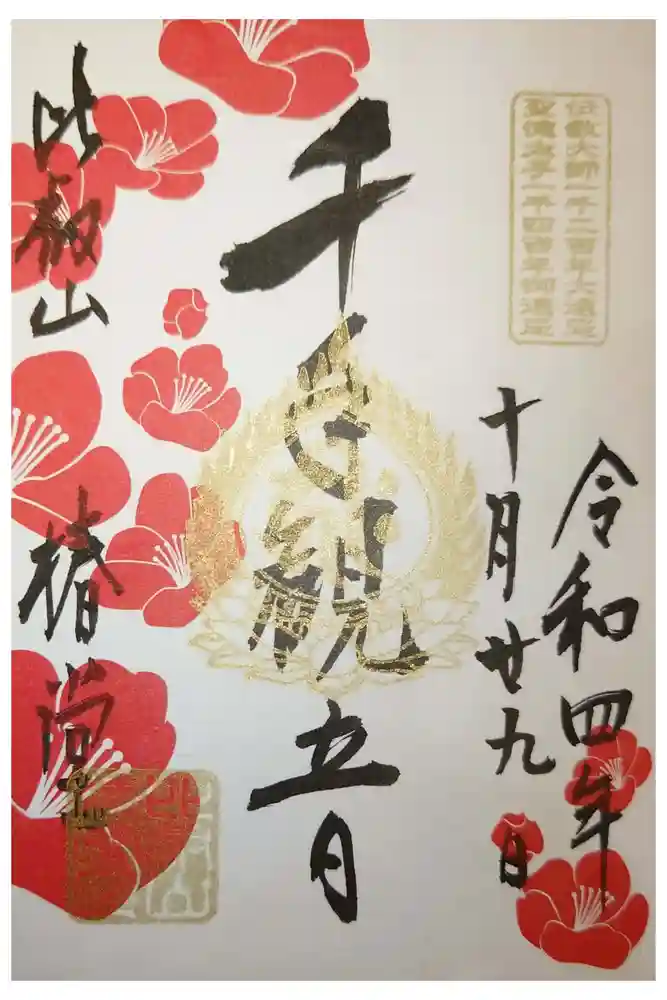 伝教大師一千二百年大遠忌
聖徳太子一千四百年御遠忌
令和四年
十月廿九日
千手観音
比叡山
椿堂